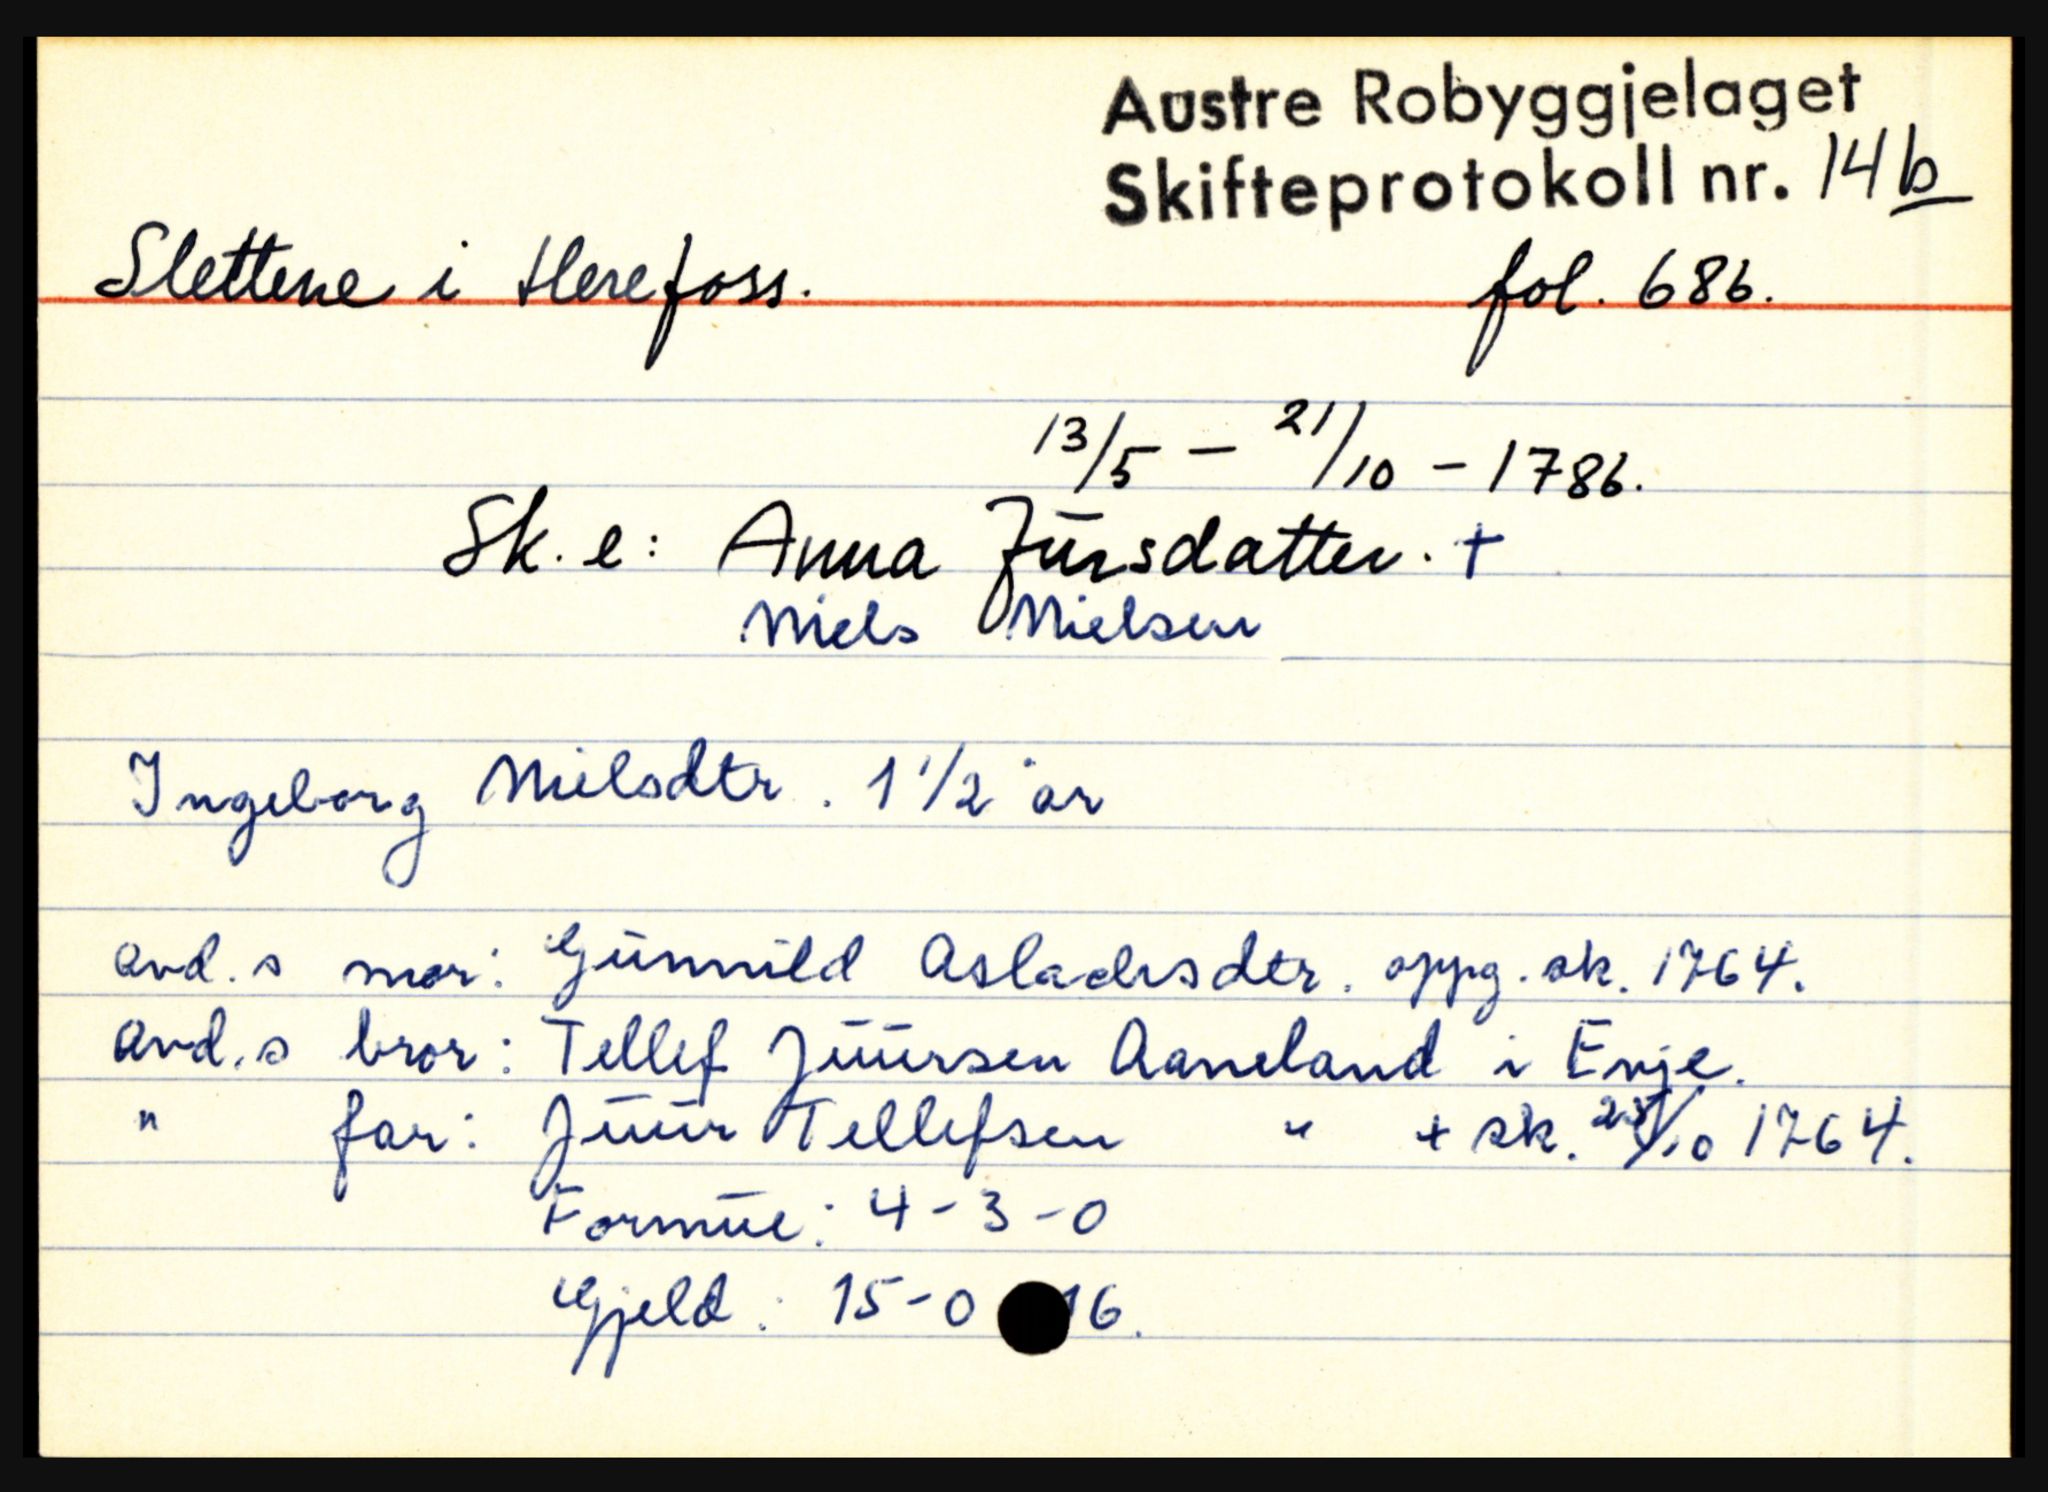 Austre Robyggjelaget
Skifteprotokoll nr. 14b
Slettene i Herefoss. fol. 686.
13/5 — 21/10 - 1786.
Sk. e: Anna Jursdatter. +
Niels Nielsen
Ingeborg Nielsdtr. 1 1/2 år
avd.s mor: Gunnild Aslachsdtr. oppg. sk. 1764.
Avd.s bror: Tellef Juursen Aaneland i Evje.
" far: Juur Tellefsen " + sk. /10 1764.
Formue: 4-3-0
Gjeld: 15-0 16.